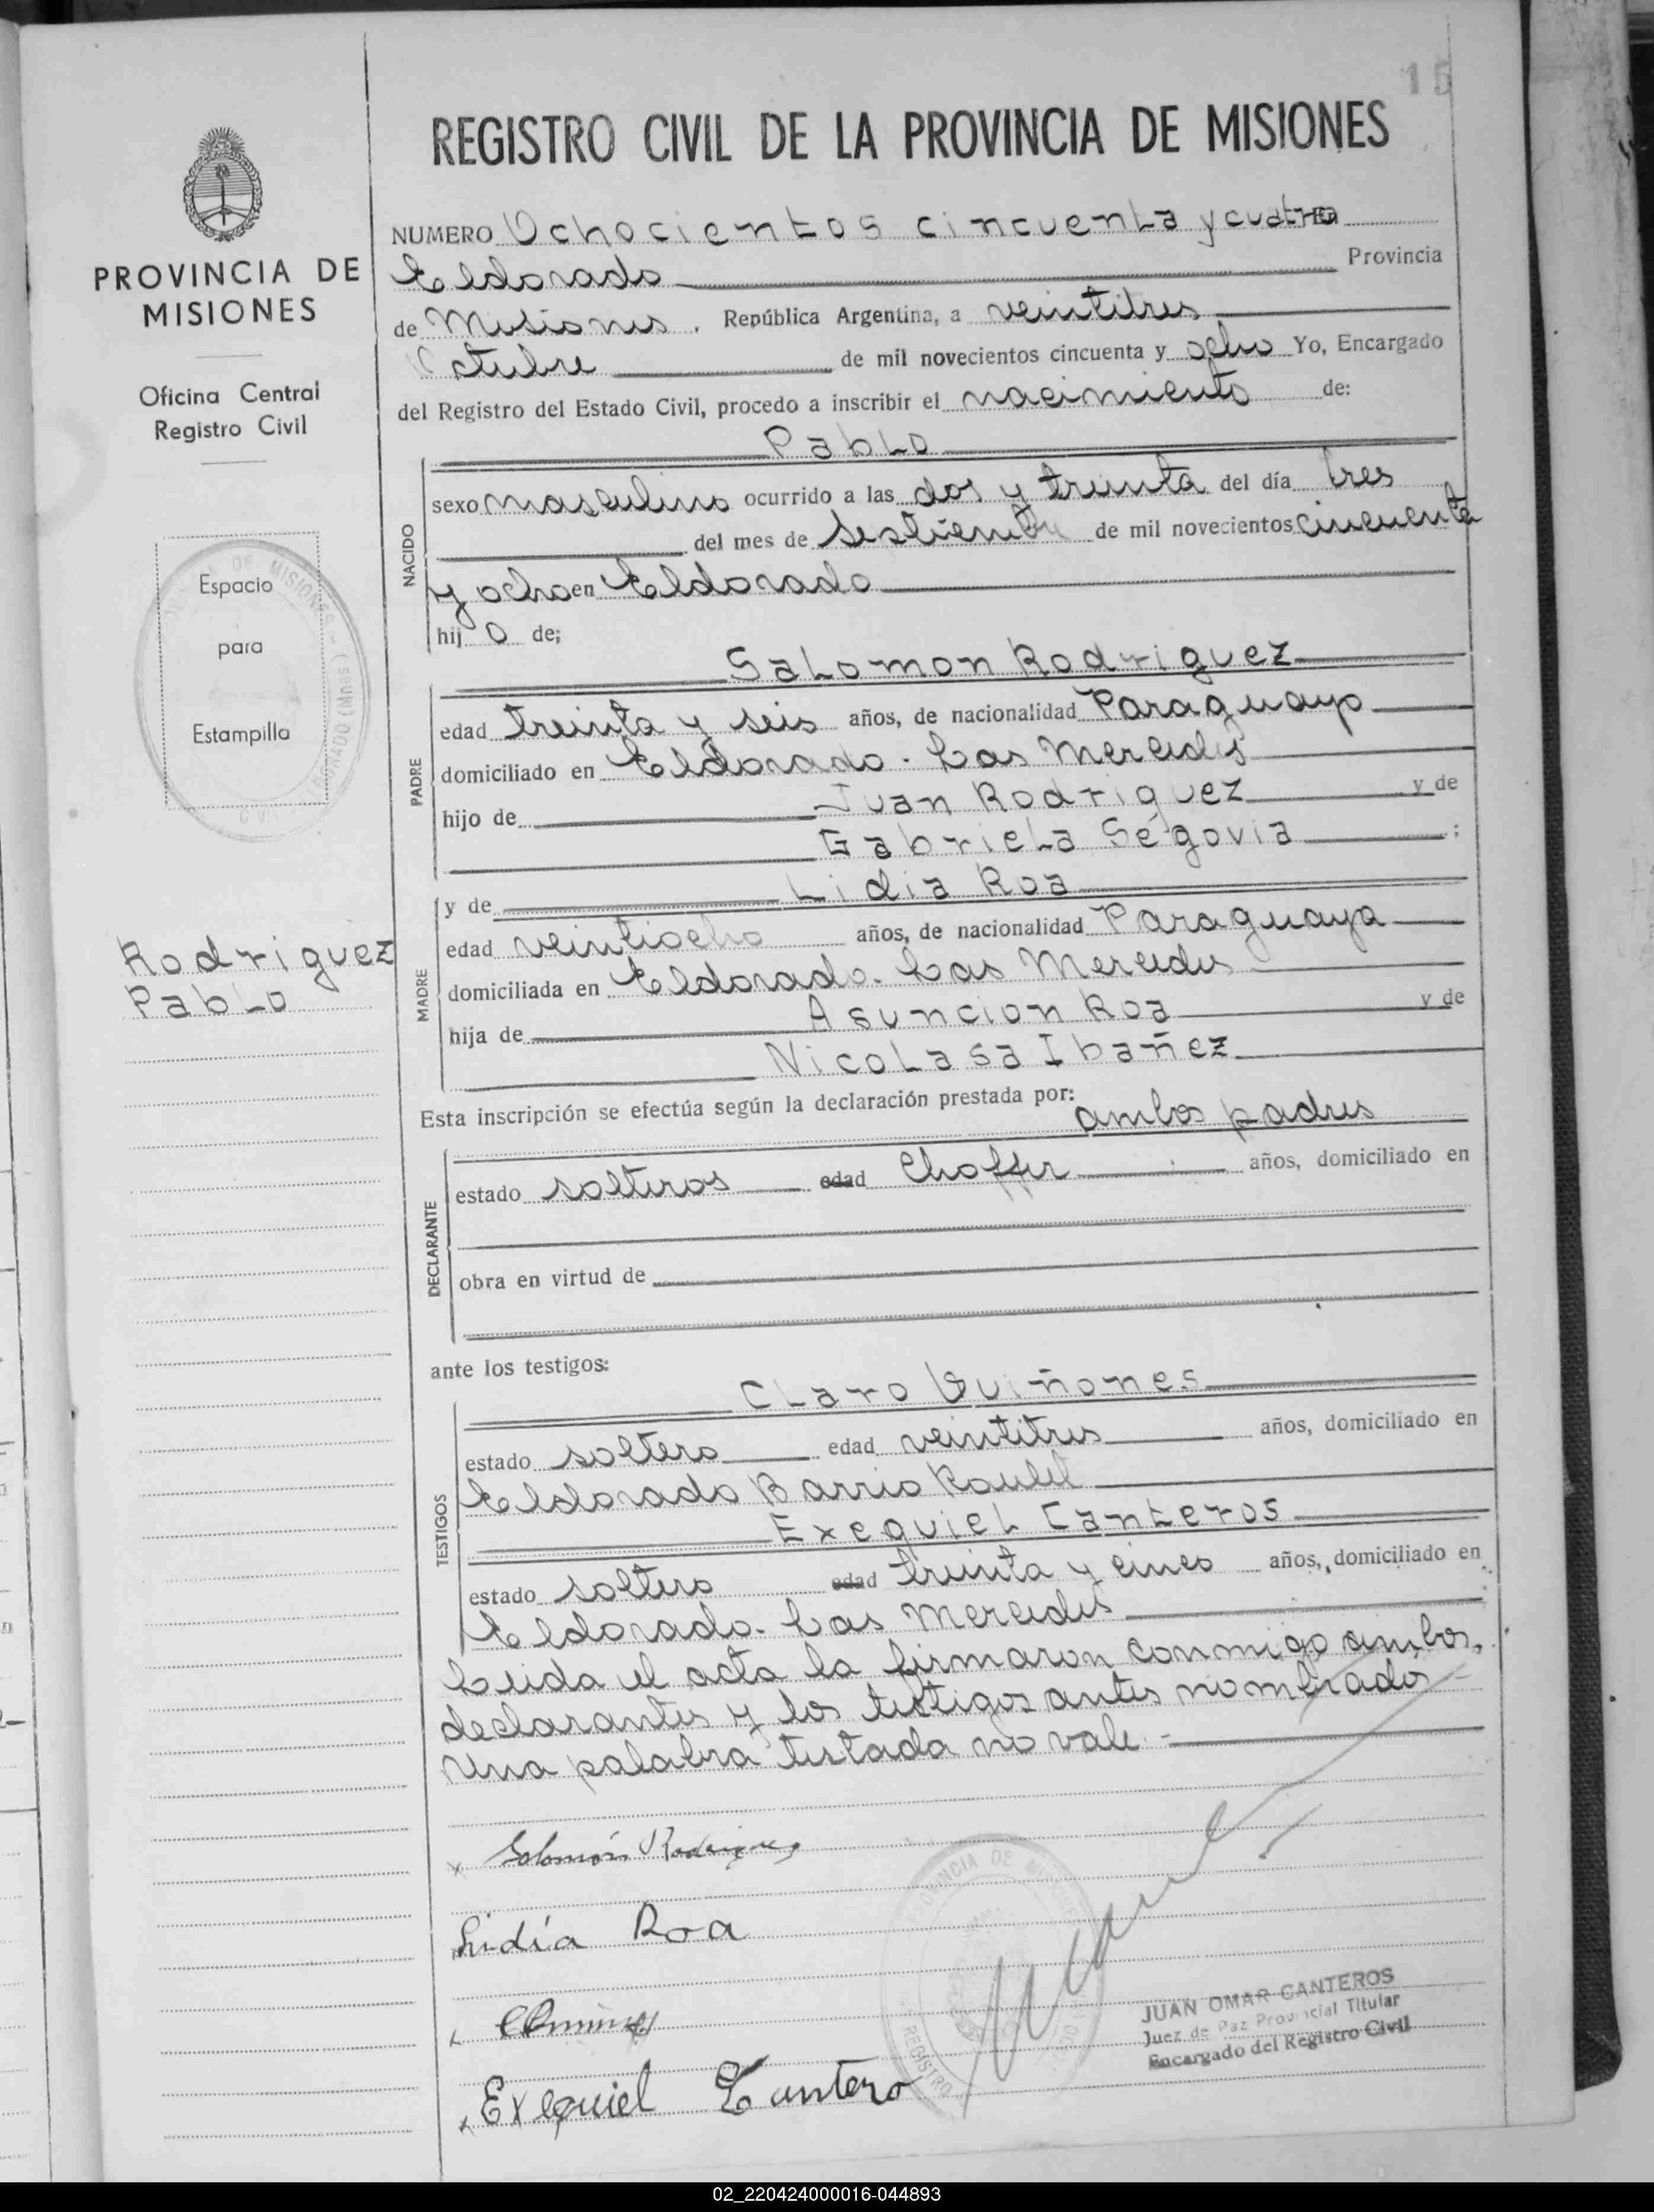 15
REGISTRO CIVIL DE LA PROVINCIA DE MISIONES
PROVINCIA DE
MISIONES
Oficina Central
Registro Civil
Espacio
para
Estampilla
Rodriguez
Pablo
NUMERO Ochocientos cincuenta y cuatro
Eldorado Provincia
de Misiones, República Argentina, a veintitres
Octubre de mil novecientos cincuenta y ocho Yo, Encargado
del Registro del Estado Civil, procedo a inscribir el nacimiento de:
Pablo
NACIDO
sexo masculino ocurrido a las dos y treinta del día tres
del mes de de mil novecientos cincuenta
y ocho en Eldorado
hijo de;
Salomon Rodriguez
PADRE
edad treinta y seis años, de nacionalidad Paraguayo
domiciliado en Eldorado - Las Mercedes
hijo de Juan Rodriguez y de
Gabriela Ségovia ;
y de Lidia Roa
MADRE
edad veintiocho años, de nacionalidad Paraguaya
domiciliada en Eldorado - Las Mercedes
hija de Asuncion Roa y de
Nicolasa Ibañez
Esta inscripción se efectúa según la declaración prestada por:
ambos padres
DECLARANTE
estado solteros edad Choffer años, domiciliado en
obra en virtud de
ante los testigos:
Claro Quiñones
TESTIGOS
estado soltero edad veintitres años, domiciliado en
Eldorado Barrio
Exequiel Canteros
estado soltero edad treinta y cinco años, domiciliado en
Eldorado - Las Mercedes
Leida el acta la firmaron conmigo ambos
declarantes y los testigos antes nombrados -
Una palabra testada no vale -
x Salomón Rodriguez
Lidía Roa
x Exequiel Cantero
JUAN OMAR CANTEROS
Juez de Paz Provincial Titular
Encargado del Registro Civil
02_220424000016-044893